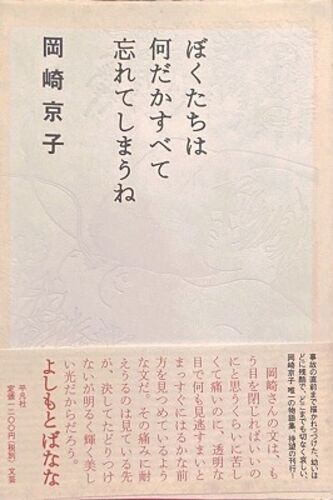 ぼくたちは
何だかすべて
忘れてしまうね
岡崎京子
事故の直前まで描かれつづけた、幼いほ
どに残酷で、どこまでも切なく哀しい、
岡崎京子 唯一の物語集、待望の刊行。
岡崎さんの文は、も
う目を閉じればいいの
にと思うくらいに苦し
くて痛いのに、透明な
目で何も見逃すまいと
まっすぐにはるかな前
方を見つめているよう
な文だ。その痛みに耐
えりうるのは見ている先
が、決してたどりつけ
ないが明るく輝く美し
い光だからだろう。
よしもとばなな
平凡社
定価一二〇〇円(税別) 文芸